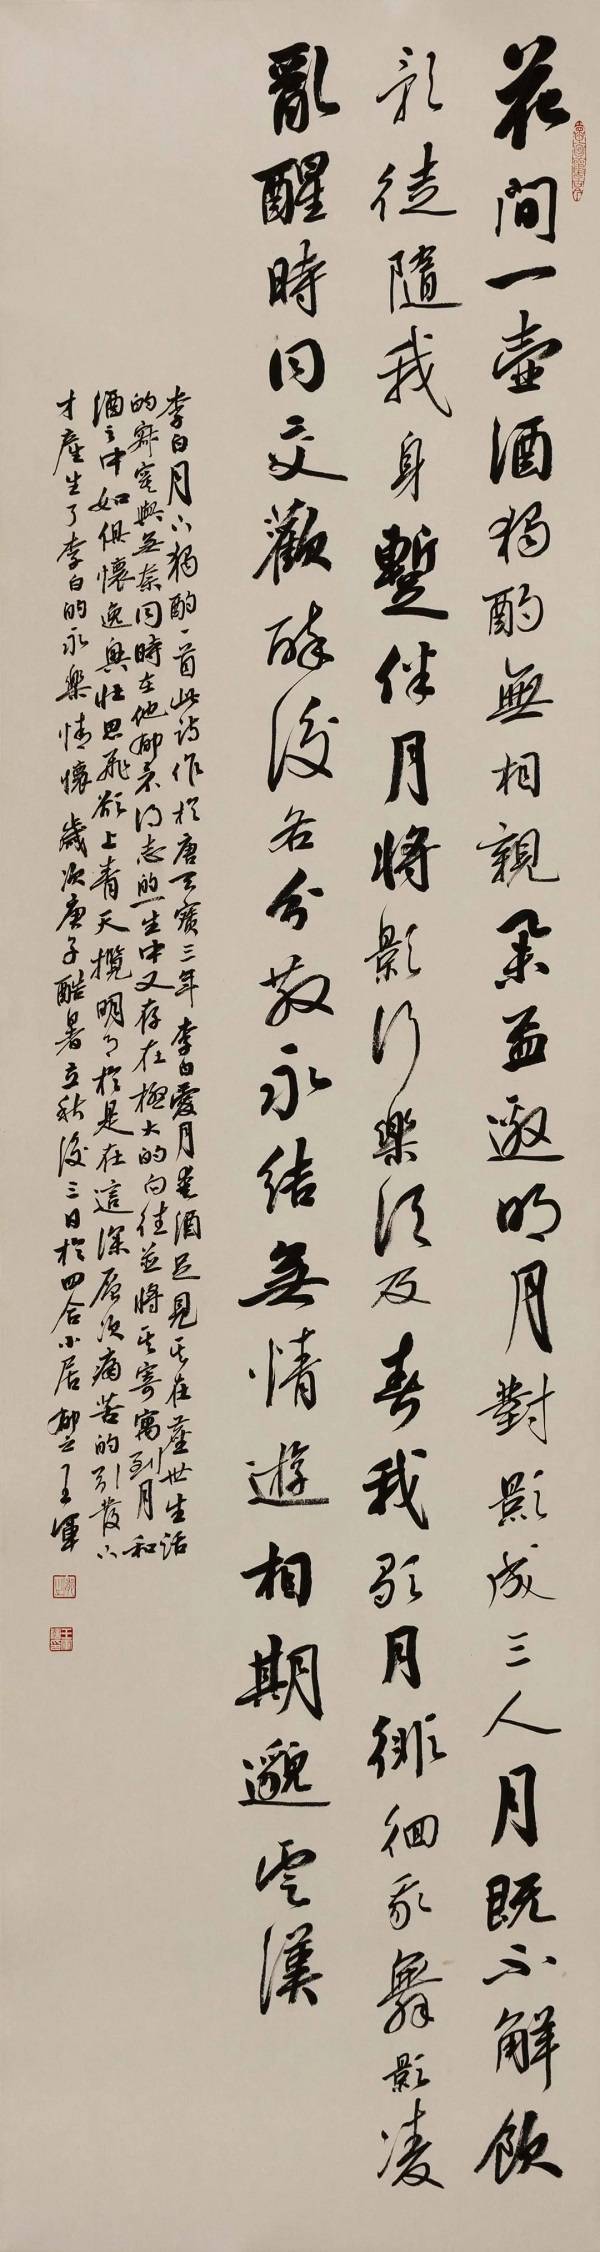 花間一壺酒獨酌無相親舉盃邀明月對影成三人月既不解飲
影徒隨我身暫伴月將影行樂須及春我歌月徘徊我舞影凌
亂醒時同交歡醉後各分散永結無情遊相期邈雲漢
李白月下獨酌一首此詩作於唐天寶三年李白愛月嗜酒足見其在塵世生活
的寂寞與無奈同時在他郁郁不得志的一生中又存在極大的向往並將其寄寓到月和
酒之中如俱懷逸興壯思飛欲上青天攬明月於是在這深層次痛苦的引發下
才產生了李白的永樂情懷歲次庚子酷暑立秋後三日於四合小居 王軍